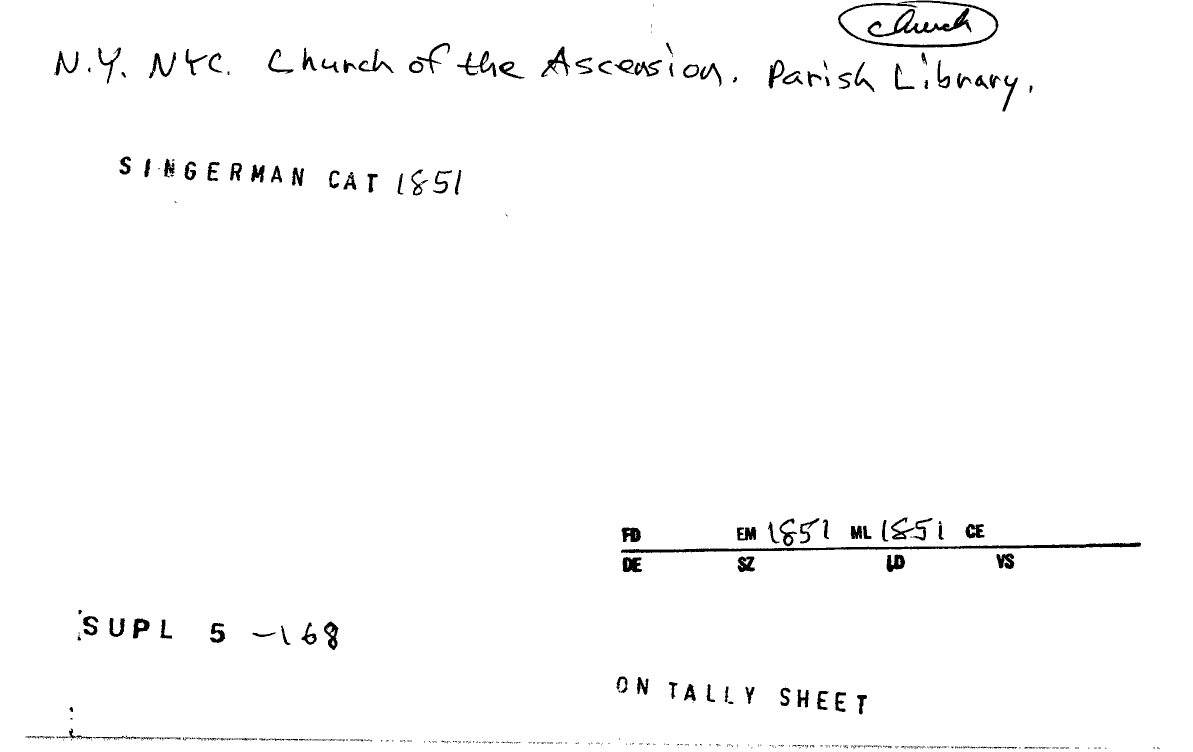 church
N.Y. NYC. Church of the Ascension. Parish Library.
SINGERMAN CAT 1851
FD EM 1851 ML 1851 CE
DE SZ LD VS
SUPL 5 -168
ON TALLY SHEET